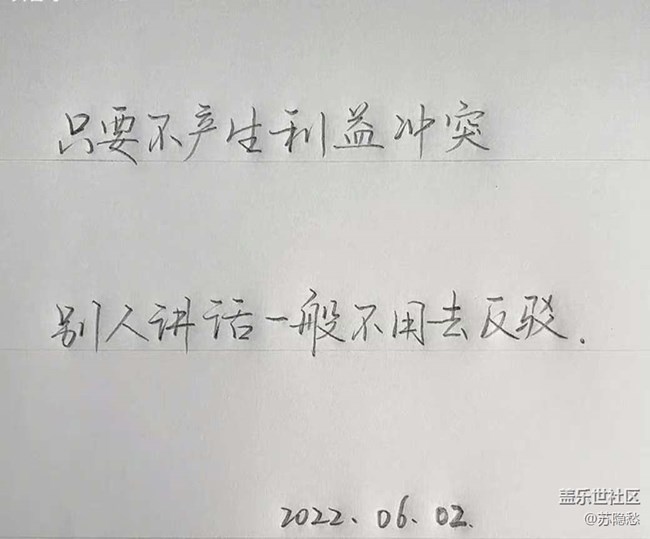 只要不产生利益冲突
别人讲话一般不用去反驳.
2022.06.02.
盖乐世社区
@苏隐愁